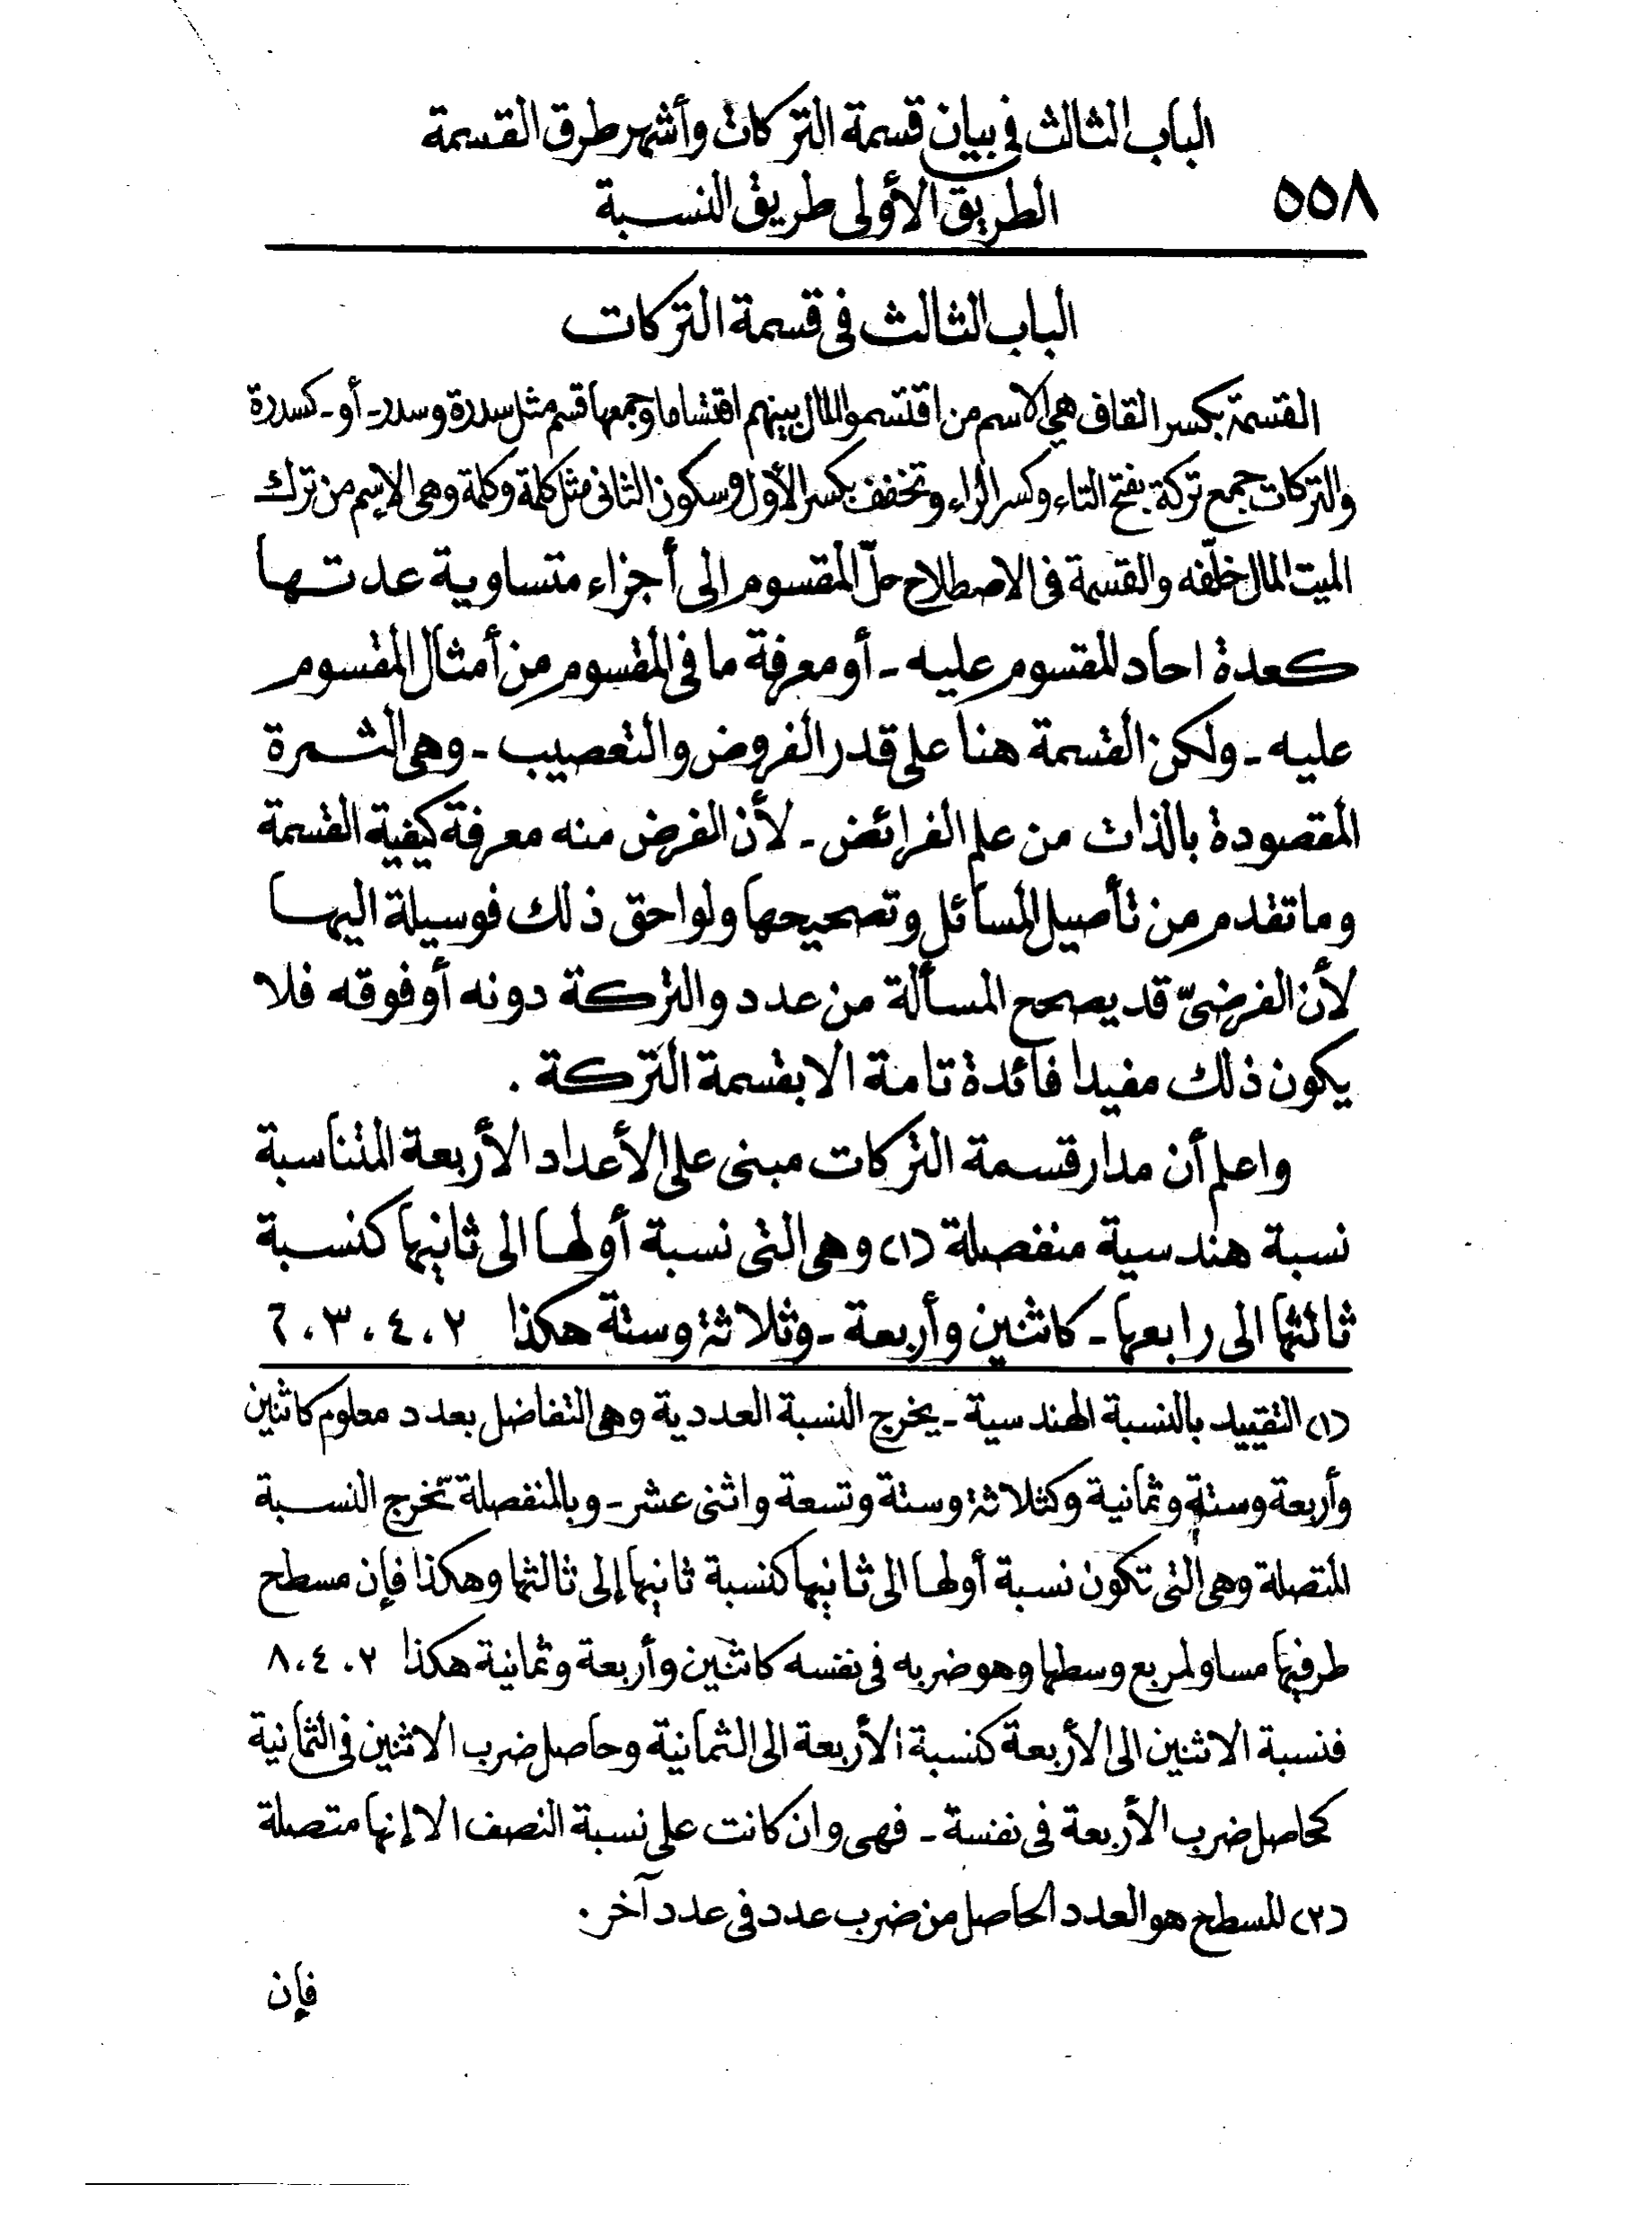 الباب الثالث في بيان قسمة التركات وأشهر طرق القسمة
٥٥٨
الطريق الأولى طريق النسبة
الباب الثالث فى قسمة التركات
القسمة بكسر القاف هي الاسم من اقتسموا المال بينهم اقتساما وجمعها قسم مثل سدرة وسدر ـ أو ـ كسدرة
والتركات جمع تركة بفتح التاء وكسر الراء وتخفف بكسر الأول وسكون الثانى مثل كلمة وكلمة وهى الإسم من ترك
الميت المال خلّفه والقسمة فى الاصطلاح حلّ المقسوم إلى أجزاء متساوية عدتها
كعدة احاد المقسوم عليه ـ أو معرفة ما فى المقسوم من أمثال المقسوم
عليه ـ ولكن القسمة هنا على قدر الفروض والتعصيب ـ وهى الثمرة
المقصودة بالذات من علم الفرائض ـ لأن الغرض منه معرفة كيفية القسمة
وما تقدم من تأصيل المسائل وتصحيحها ولواحق ذلك فوسيلة اليها
لأن الفرضىّ قد يصحح المسألة من عدد والتركة دونه أو فوقه فلا
يكون ذلك مفيدا فائدة تامة الا بقسمة التركة .
واعلم أن مدار قسمة التركات مبنى على الأعداد الأربعة المتناسبة
نسبة هندسية منفصلة (١) وهى التى نسبة أولها الى ثانيها كنسبة
ثالثها الى رابعها ـ كاثنين وأربعة ـ وثلاثة وستة هكذا ٢ ، ٤ ، ٣ ، ٦
(١) التقييد بالنسبة الهندسية ـ يخرج النسبة العددية وهى التفاضل بعدد معلوم كاثنين
وأربعة وستة وثمانية وكثلاثة وستة وتسعة واثنى عشر ـ وبالمنفصلة تخرج النسبة
المتصلة وهى التى تكون نسبة أولها الى ثانيها كنسبة ثانيها إلى ثالثها وهكذا فإن مسطح
طرفيها مساو لمربع وسطها وهو ضربه فى نفسه كاثنين وأربعة وثمانية هكذا ٢ ، ٤ ، ٨
فنسبة الاثنين الى الأربعة كنسبة الأربعة الى الثمانية وحاصل ضرب الاثنين فى الثمانية
كحاصل ضرب الأربعة فى نفسة ـ فهى وان كانت على نسبة النصف الا إنها متصلة
(٢) المسطح هو العدد الحاصل من ضرب عدد فى عدد آخر .
فإن